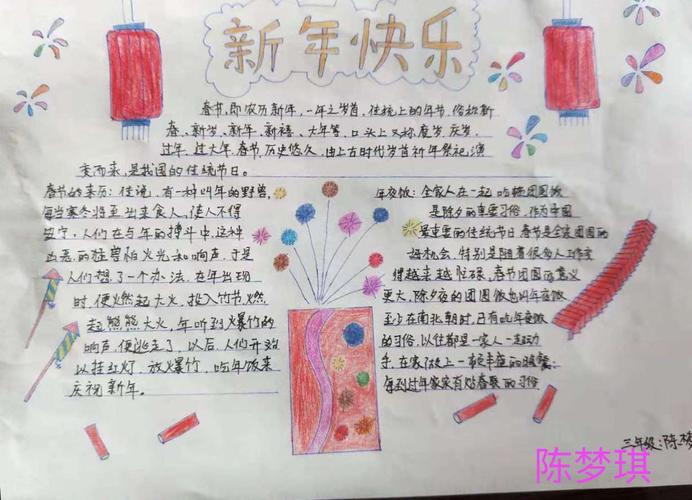 新年快乐
春节,即农历新年,一年之岁首,传统上的年节。俗称新
春、新岁、新年、新禧、大年等,口头上又称度岁、庆岁、
过年、过大年。春节历史悠久,由上古时代岁首祈年祭祀演
变而来,是我国的传统节日。
春节的来历:传说,有一种叫年的野兽,
每当寒冬将至出来食人,使人不得
安宁。人们在与年的搏斗中,这种
凶恶的怪兽怕火光和响声,于是
人们想了一个办法,在年出现
时,便燃起大火,投入竹节,燃
起熊熊大火,年听到爆竹的
响声,便逃走了,以后,人们开始
以挂红灯,放爆竹,吃年饭来
庆祝新年。
年夜饭:全家人在一起吃团圆饭
是除夕的重要习俗,作为中国
最重要的传统节日,春节是全家团圆的
好机会,特别是随着很多人工作变
得越来越忙碌,春节团圆的意义
更大,除夕夜的团圆饭也叫年夜饭
至少在南北朝时,已有吃年夜饭
的习俗,以往都是一家人一起动
手,在家做上一桌丰盛的晚餐
每到过年家家有贴春联的习俗
三年级:陈梦
陈梦琪